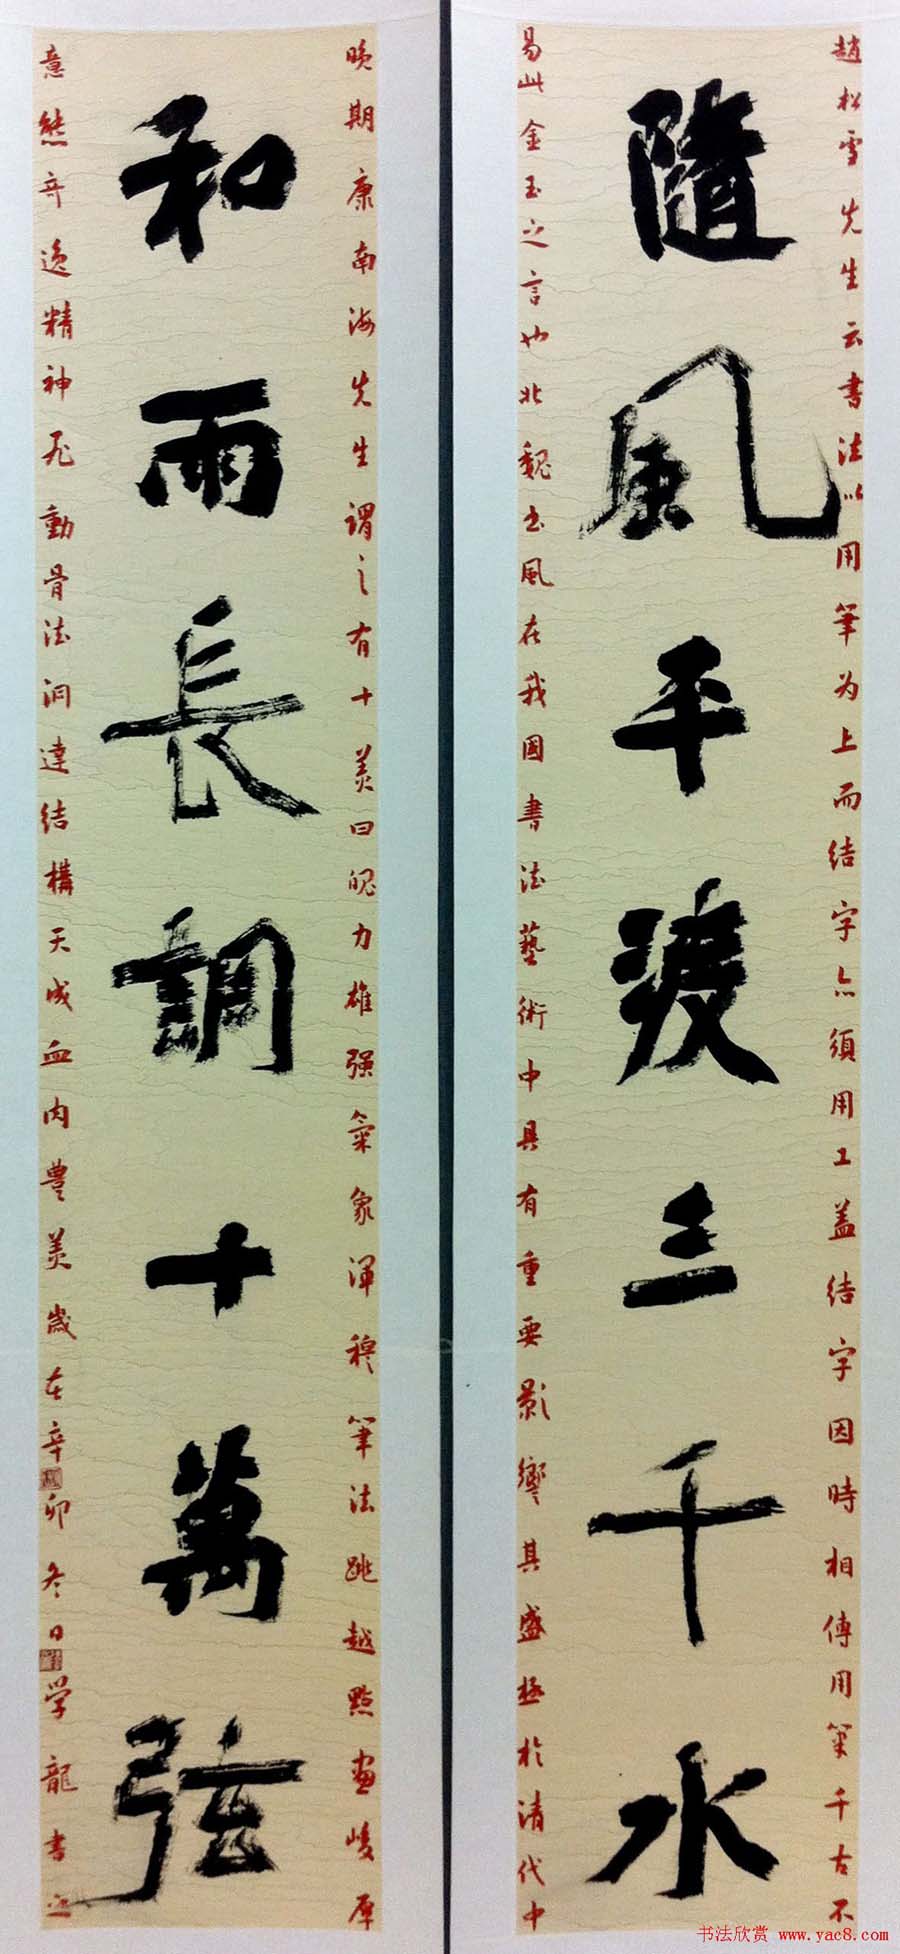 趙松雪先生云書法以用筆为上而结字亦須用工盖结字因時相傳用筆千古不
隨風平渡三千水
易此金玉之言也北魏书風在我國書法藝術中具有重要影響其盛極於清代中
晚期康南海先生謂之有十美曰魄力雄强氣象渾穆筆法跳越點畫峻厚
和雨長調十萬弦
意態奇逸精神飛動骨法洞達结構天成血肉豐美歲在辛卯冬日学龍書之
书法欣赏 www.yac8.com